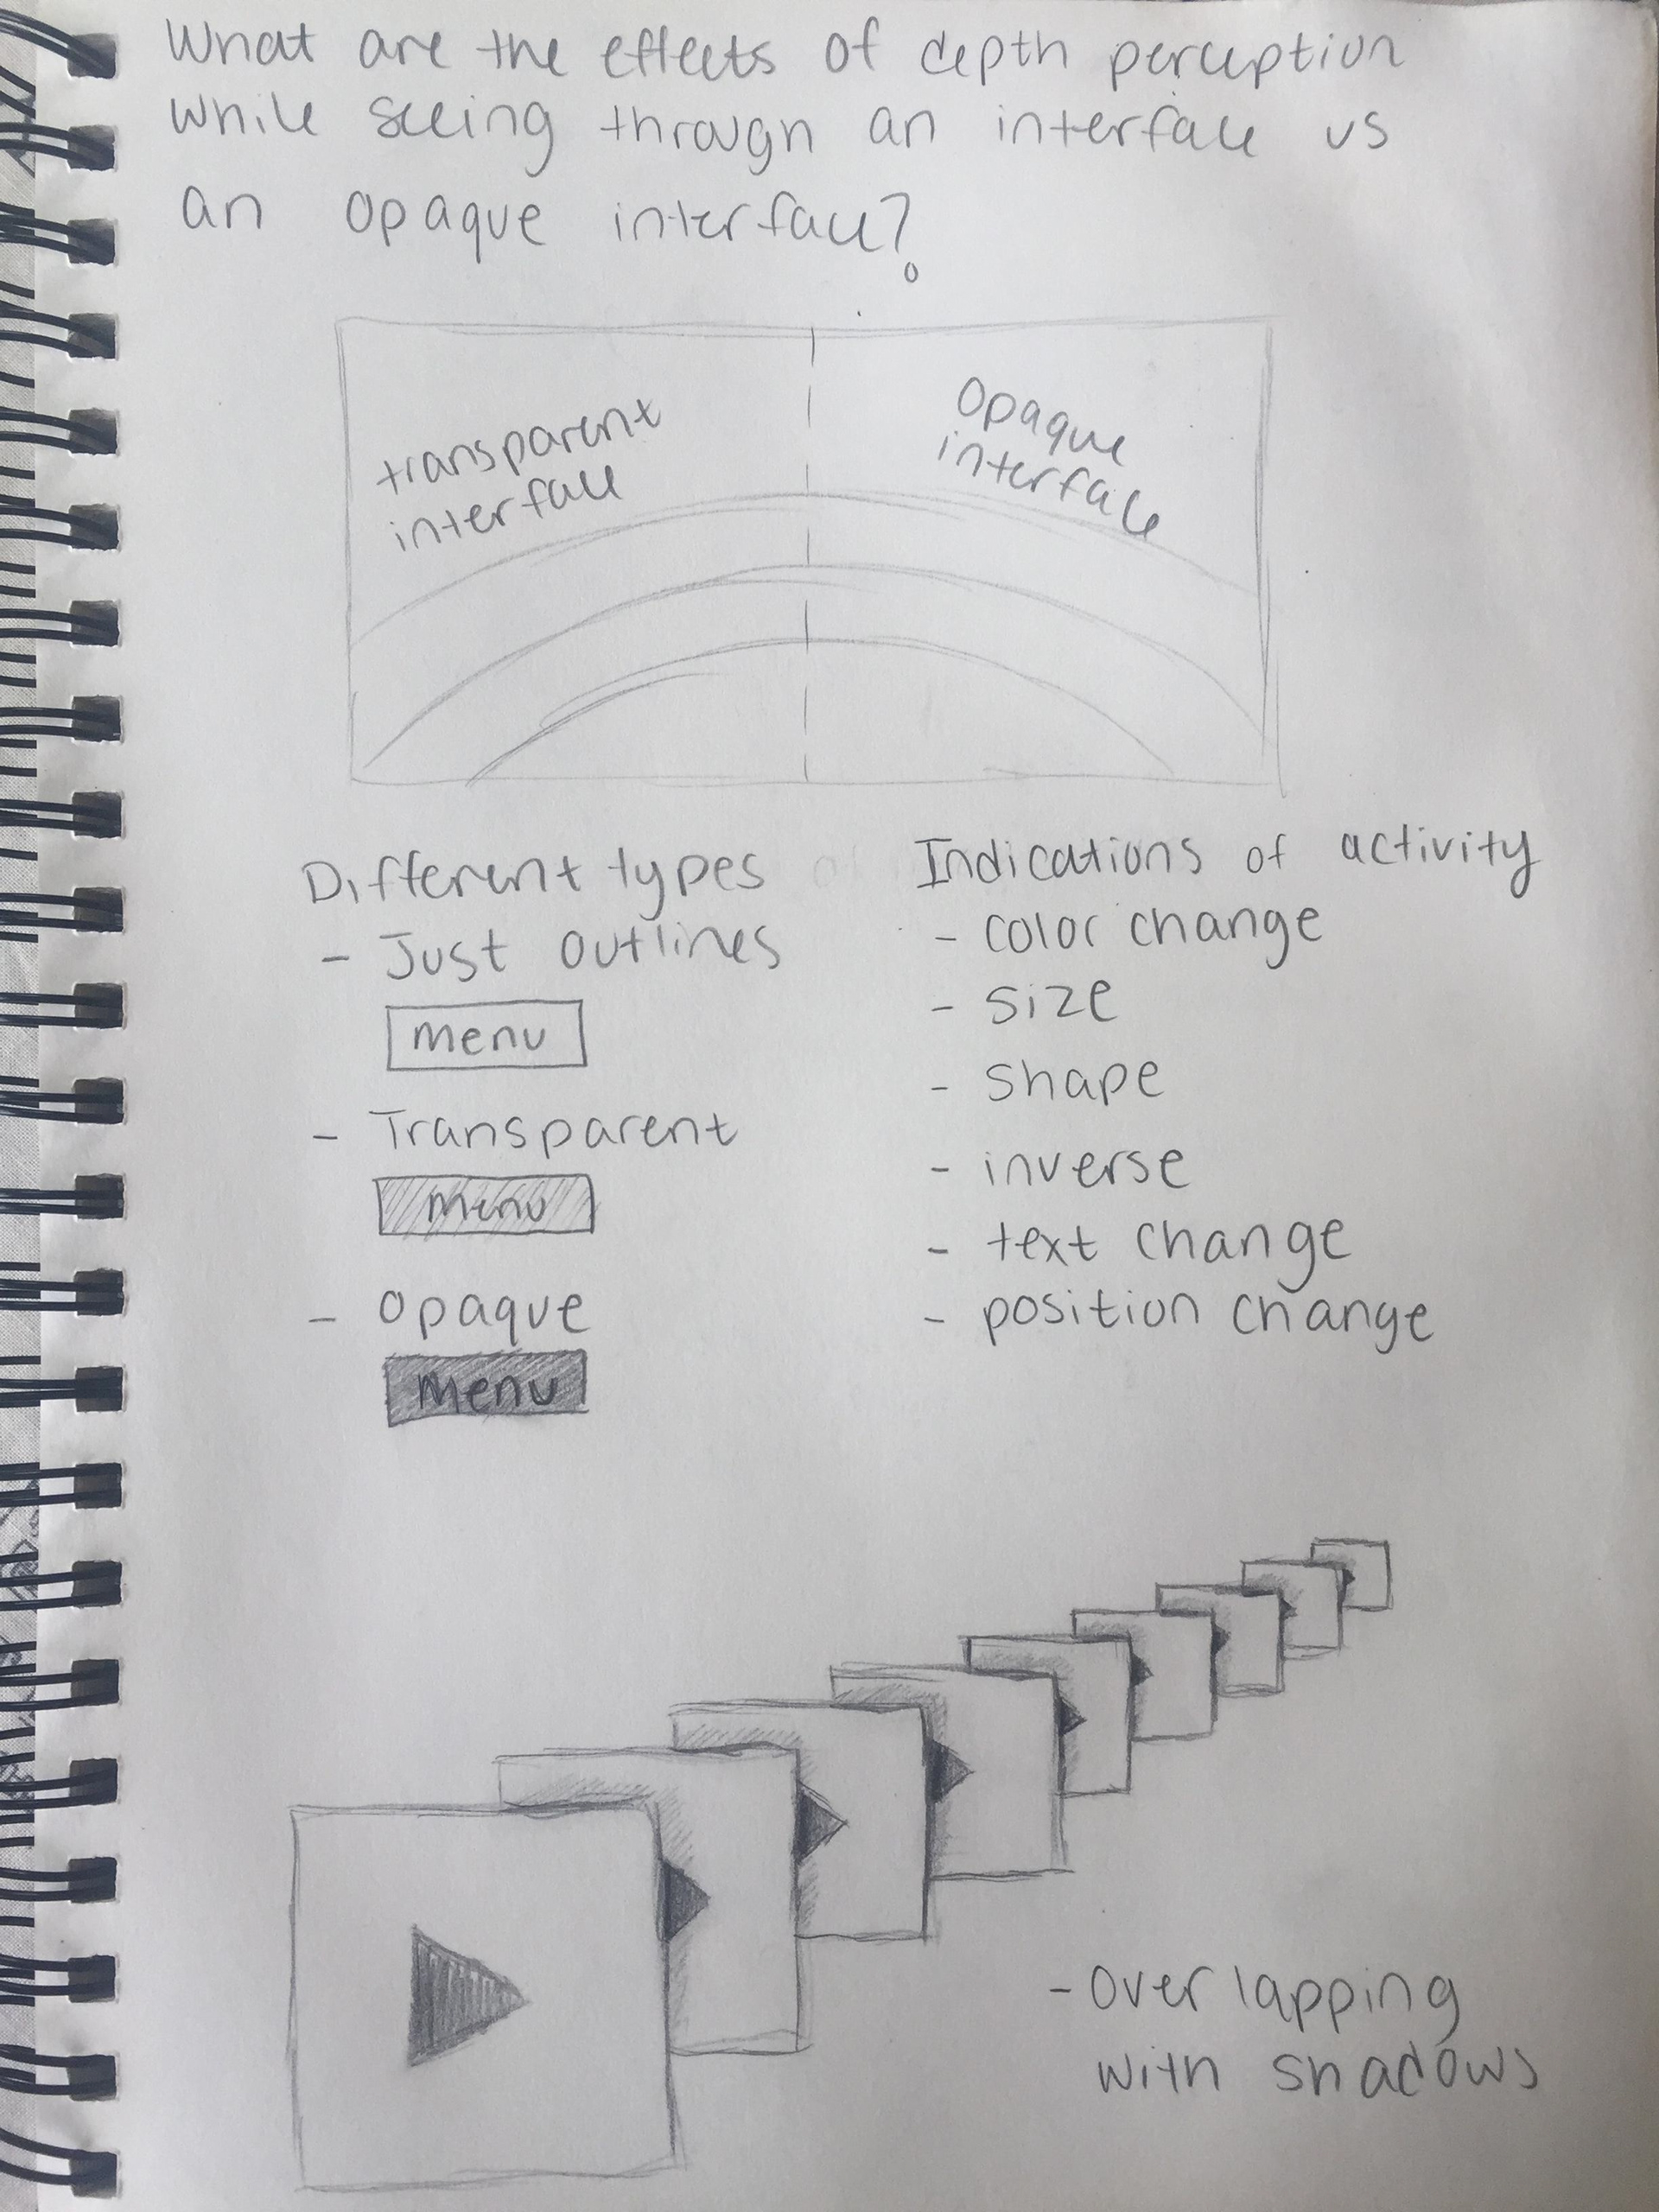 What are the effects of depth perception
while seeing through an interface vs
an opaque interface?
transparent
interface
opaque
interface
Different types of
- Just outlines
menu
- Transparent
menu
- Opaque
menu
Indications of activity
- color change
- size
- shape
- inverse
- text change
- position change
- Overlapping
with shadows